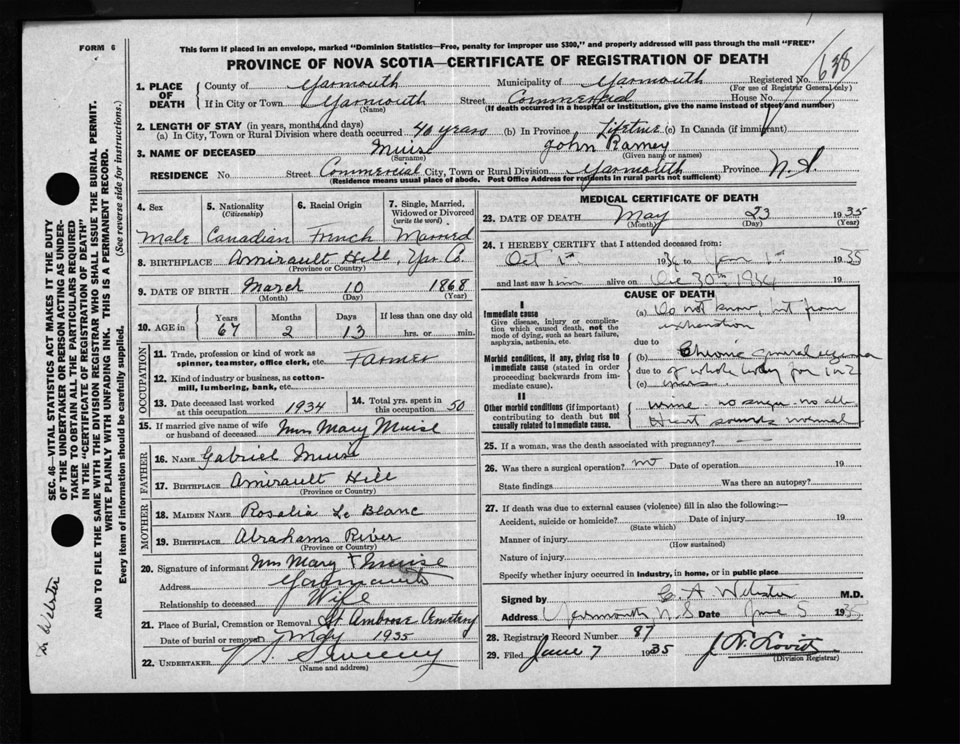 FORM 6
This form if placed in an envelope, marked "Dominion Statistics—Free, penalty for improper use $300," and properly addressed will pass through the mail "FREE"
PROVINCE OF NOVA SCOTIA—CERTIFICATE OF REGISTRATION OF DEATH
638
1. PLACE OF DEATH
County of Yarmouth Municipality of Yarmouth Registered No.
(For use of Registrar General only)
If in City or Town Yarmouth Street Commercial House No.
(Name) (If death occurred in a hospital or institution, give the name instead of street and number)
2. LENGTH OF STAY (in years, months and days)
(a) In City, Town or Rural Division where death occurred 40 years (b) In Province Lifetime (c) In Canada (if immigrant)
3. NAME OF DECEASED Muise John Ramey
(Surname) (Given name or names)
RESIDENCE No Street Commercial City, Town or Rural Division Yarmouth Province N.S.
(Residence means usual place of abode. Post Office Address for residents in rural parts not sufficient)
4. Sex 5. Nationality (Citizenship) 6. Racial Origin 7. Single, Married, Widowed or Divorced (write the word)
Male Canadian French Married
8. BIRTHPLACE Amirault Hill, Yar. Co.
(Province or Country)
9. DATE OF BIRTH March 10 1868
(Month) (Day) (Year)
10. AGE in Years Months Days If less than one day old
67 2 13 hrs. or min.
OCCUPATION
11. Trade, profession or kind of work as spinner, teamster, office clerk, etc. Farmer
12. Kind of industry or business, as cotton-mill, lumbering, bank, etc.
13. Date deceased last worked at this occupation 1934 14. Total yrs. spent in this occupation 50
15. If married give name of wife or husband of deceased Mrs Mary Muise
FATHER
16. NAME Gabriel Muise
17. BIRTHPLACE Amirault Hill
(Province or Country)
MOTHER
18. MAIDEN NAME Rosalia Le Blanc
19. BIRTHPLACE Abrahams River
(Province or Country)
20. Signature of informant Mrs Mary Muise
Address Yarmouth
Relationship to deceased Wife
21. Place of Burial, Cremation or Removal St Ambrose Cemetery
Date of burial or removal May 1935
22. UNDERTAKER Sweeny
(Name and address)
MEDICAL CERTIFICATE OF DEATH
23. DATE OF DEATH May 23 1935
(Month) (Day) (Year)
24. I HEREBY CERTIFY that I attended deceased from:
Oct 1st 1934 to Jan 1st 1935
and last saw him alive on Dec 30th 1934
CAUSE OF DEATH
I
Immediate cause
Give disease, injury or complication which caused death, not the mode of dying, such as heart failure, asphyxia, asthenia, etc.
(a) Do not know, but from exhaustion
due to
Morbid conditions, if any, giving rise to immediate cause (stated in order proceeding backwards from immediate cause).
(b) Chronic general eczema
due to of whole body for 1 or 2
(c) years
II
Other morbid conditions (if important) contributing to death but not causally related to immediate cause.
Urine no sugar no alb.
Heart sounds normal
25. If a woman, was the death associated with pregnancy?
26. Was there a surgical operation? no Date of operation 19
State findings Was there an autopsy?
27. If death was due to external causes (violence) fill in also the following:—
Accident, suicide or homicide? Date of injury 19
(State which)
Manner of injury
(How sustained)
Nature of injury
Specify whether injury occurred in industry, in home, or in public place
Signed by G. A. Webster M.D.
Address Yarmouth N.S. Date June 5 1935
28. Registrars Record Number 87
29. Filed June 7 1935
(Division Registrar)
SEC. 46—VITAL STATISTICS ACT MAKES IT THE DUTY
OF THE UNDERTAKER OR PERSON ACTING AS UNDER-
TAKER TO OBTAIN ALL THE PARTICULARS REQUIRED
IN THE "CERTIFICATE OF REGISTRATION OF DEATH"
AND TO FILE THE SAME WITH THE DIVISION REGISTRAR WHO SHALL ISSUE THE BURIAL PERMIT.
WRITE PLAINLY WITH UNFADING INK. THIS IS A PERMANENT RECORD.
Every item of information should be carefully supplied. (See reverse side for instructions.)
Dr Webster